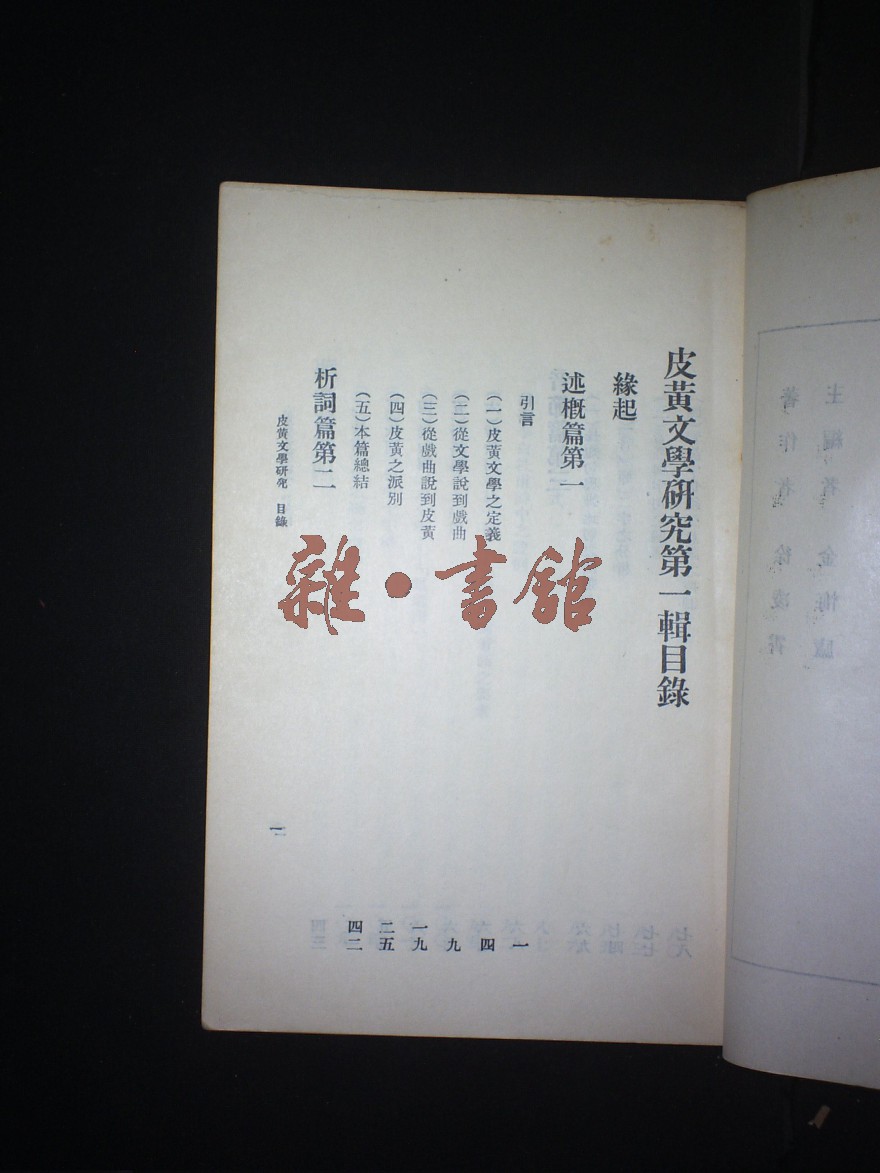 皮黃文學研究第一輯目錄
緣起
述概篇第一
引言 一
(一)皮黃文學之定義 四
(二)從文學說到戲曲 九
(三)從戲曲說到皮黃 一九
(四)皮黃之派別 二五
(五)本篇總結 四二
析詞篇第二
皮黃文學研究 目錄 一
雜·書館